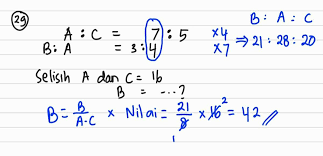 29
B : A : C
A : C = 7 : 5 x4 ⇒ 21 : 28 : 20
B : A = 3 : 4 x7
Selisih A dan C = 16
B = ...?
B = B/A-C x Nilai = 21/8 x 16 2 = 42 //
1